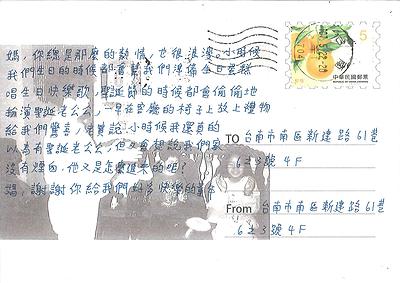 媽，你總是那麼的熱情，也很浪漫。小時候
我們生日的時候都會幫我們準備生日蛋糕
唱生日快樂歌，聖誕節的時候都會偷偷地
扮演聖誕老公公，一早在客廳的椅子上放上禮物
給我們驚喜，老實說，小時候我還真的
以為有聖誕老公公，但又會想說我們家
沒有煙囪，他又是怎麼進來的呢？
媽，謝謝你給我們許多快樂的
5
中華民國郵票
TO 台南市南區新建路61巷
623號4F
From 台南市南區新建路61巷
623號4F